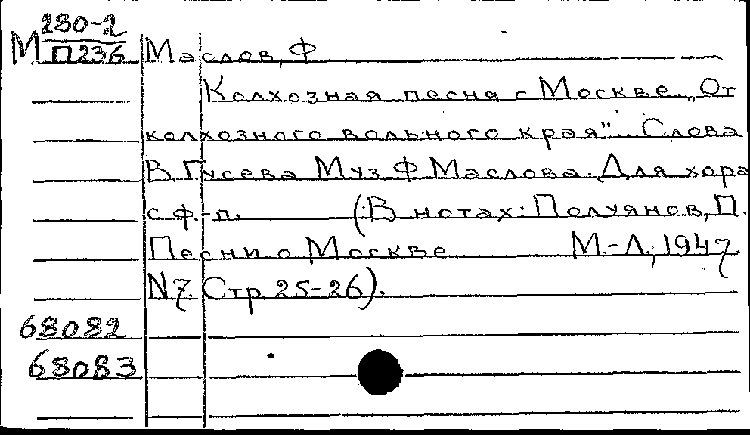 М 280-2
П236 Маслов, Ф
Колхозная песня о Москве „От
колхозного вольного края". Слова
В. Гусева Муз. Ф. Маслова. Для хора
с ф.-п. (В нотах: Полуянов, П.
Песни о Москве М.-Л., 1947
N7. Стр 25-26).
68082
68083